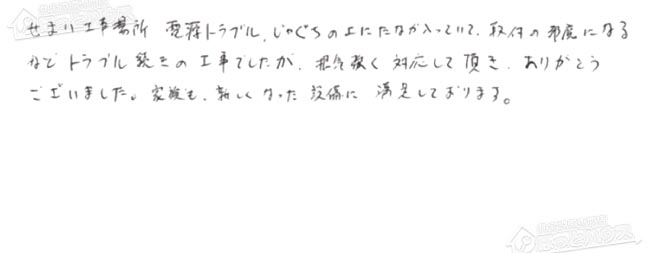 せまい工事場所 電源トラブル、じゃぐちの上にたなが入っていて、取付の邪魔になる
などトラブル続きの工事でしたが、根気強く対応して頂き、ありがとう
ございました。家族も、新しくなった設備に満足しております。